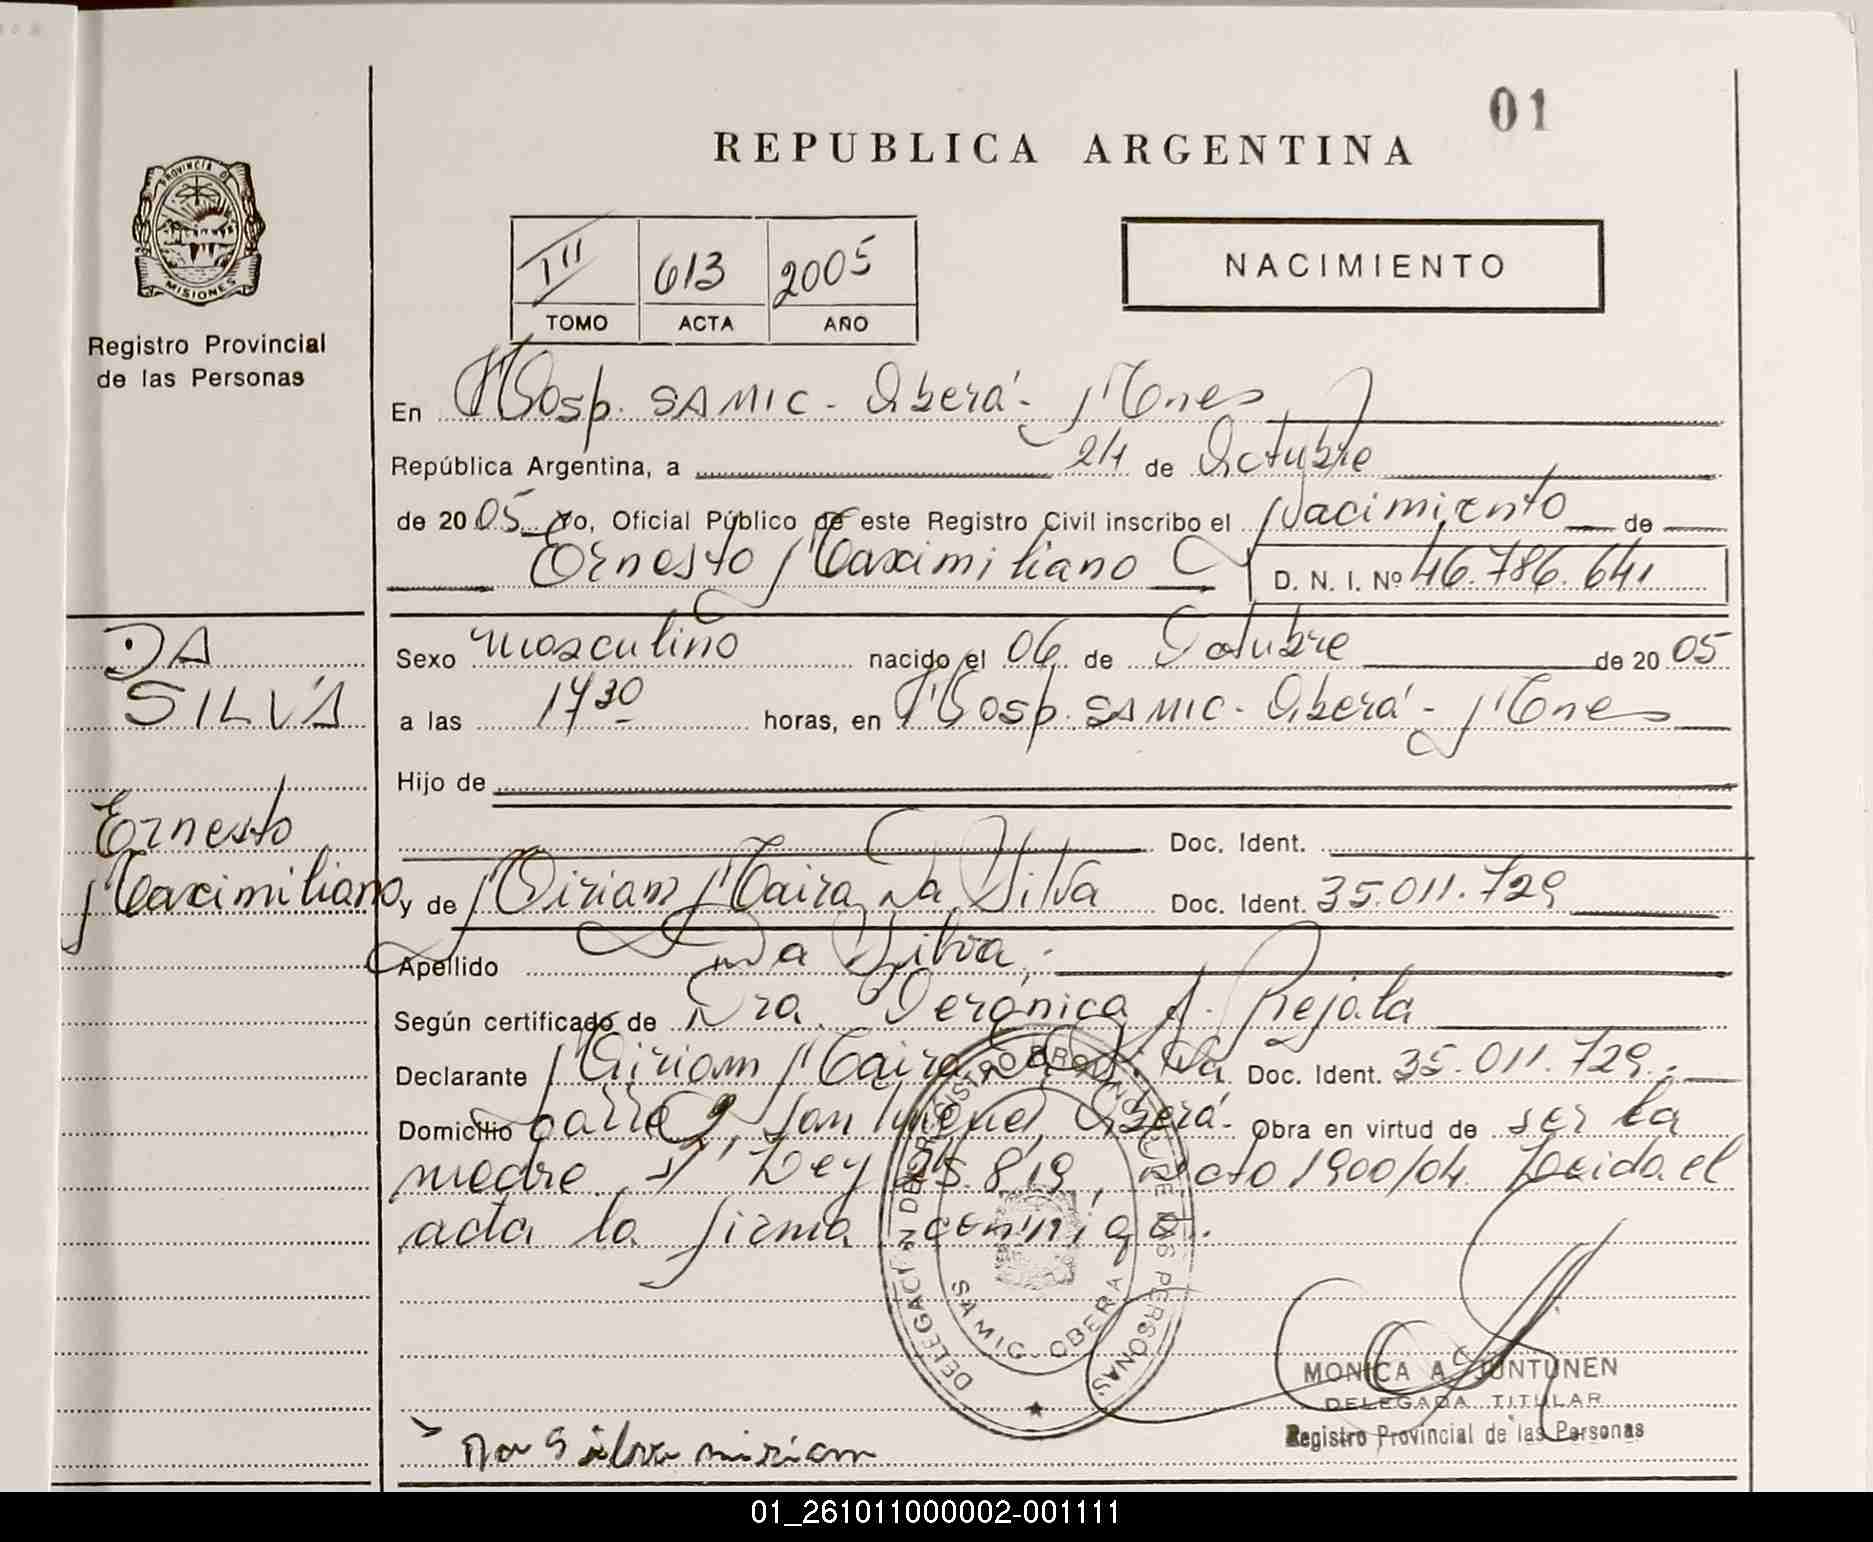 01
REPUBLICA ARGENTINA
PROVINCIA DE
MISIONES
Registro Provincial
de las Personas
III 613 2005
TOMO ACTA AÑO
NACIMIENTO
En Hosp. SAMIC - Oberá - Mnes
República Argentina, a 24 de Octubre
de 2005 Yo, Oficial Público de este Registro Civil inscribo el Nacimiento de
Ernesto Maximiliano D. N. I. Nº 46.786.641
DA
SILVA
Ernesto
Maximiliano
Sexo masculino nacido el 06 de Octubre de 2005
a las 17 30 horas, en Hosp. SAMIC - Oberá - Mnes
Hijo de
Doc. Ident.
y de Miriam Maira Da Silva Doc. Ident. 35.011.729
Apellido Da Silva.-
Según certificado de Dra. Verónica A. Rejala
Declarante Miriam Maira Da Silva Doc. Ident. 35.011.729.-
Domicilio San Miguel, Oberá. Obra en virtud de ser la
madre. s/ Ley 25.819, Dcto 1900/04. Leída el
acta la firma conmigo.
DELEGACIÓN DEL REGISTRO PROVINCIAL DE LAS PERSONAS
SAMIC OBERA
MONICA A. JUNTUNEN
DELEGADA TITULAR
Registro Provincial de las Personas
Da Silva miriam
01_261011000002-001111